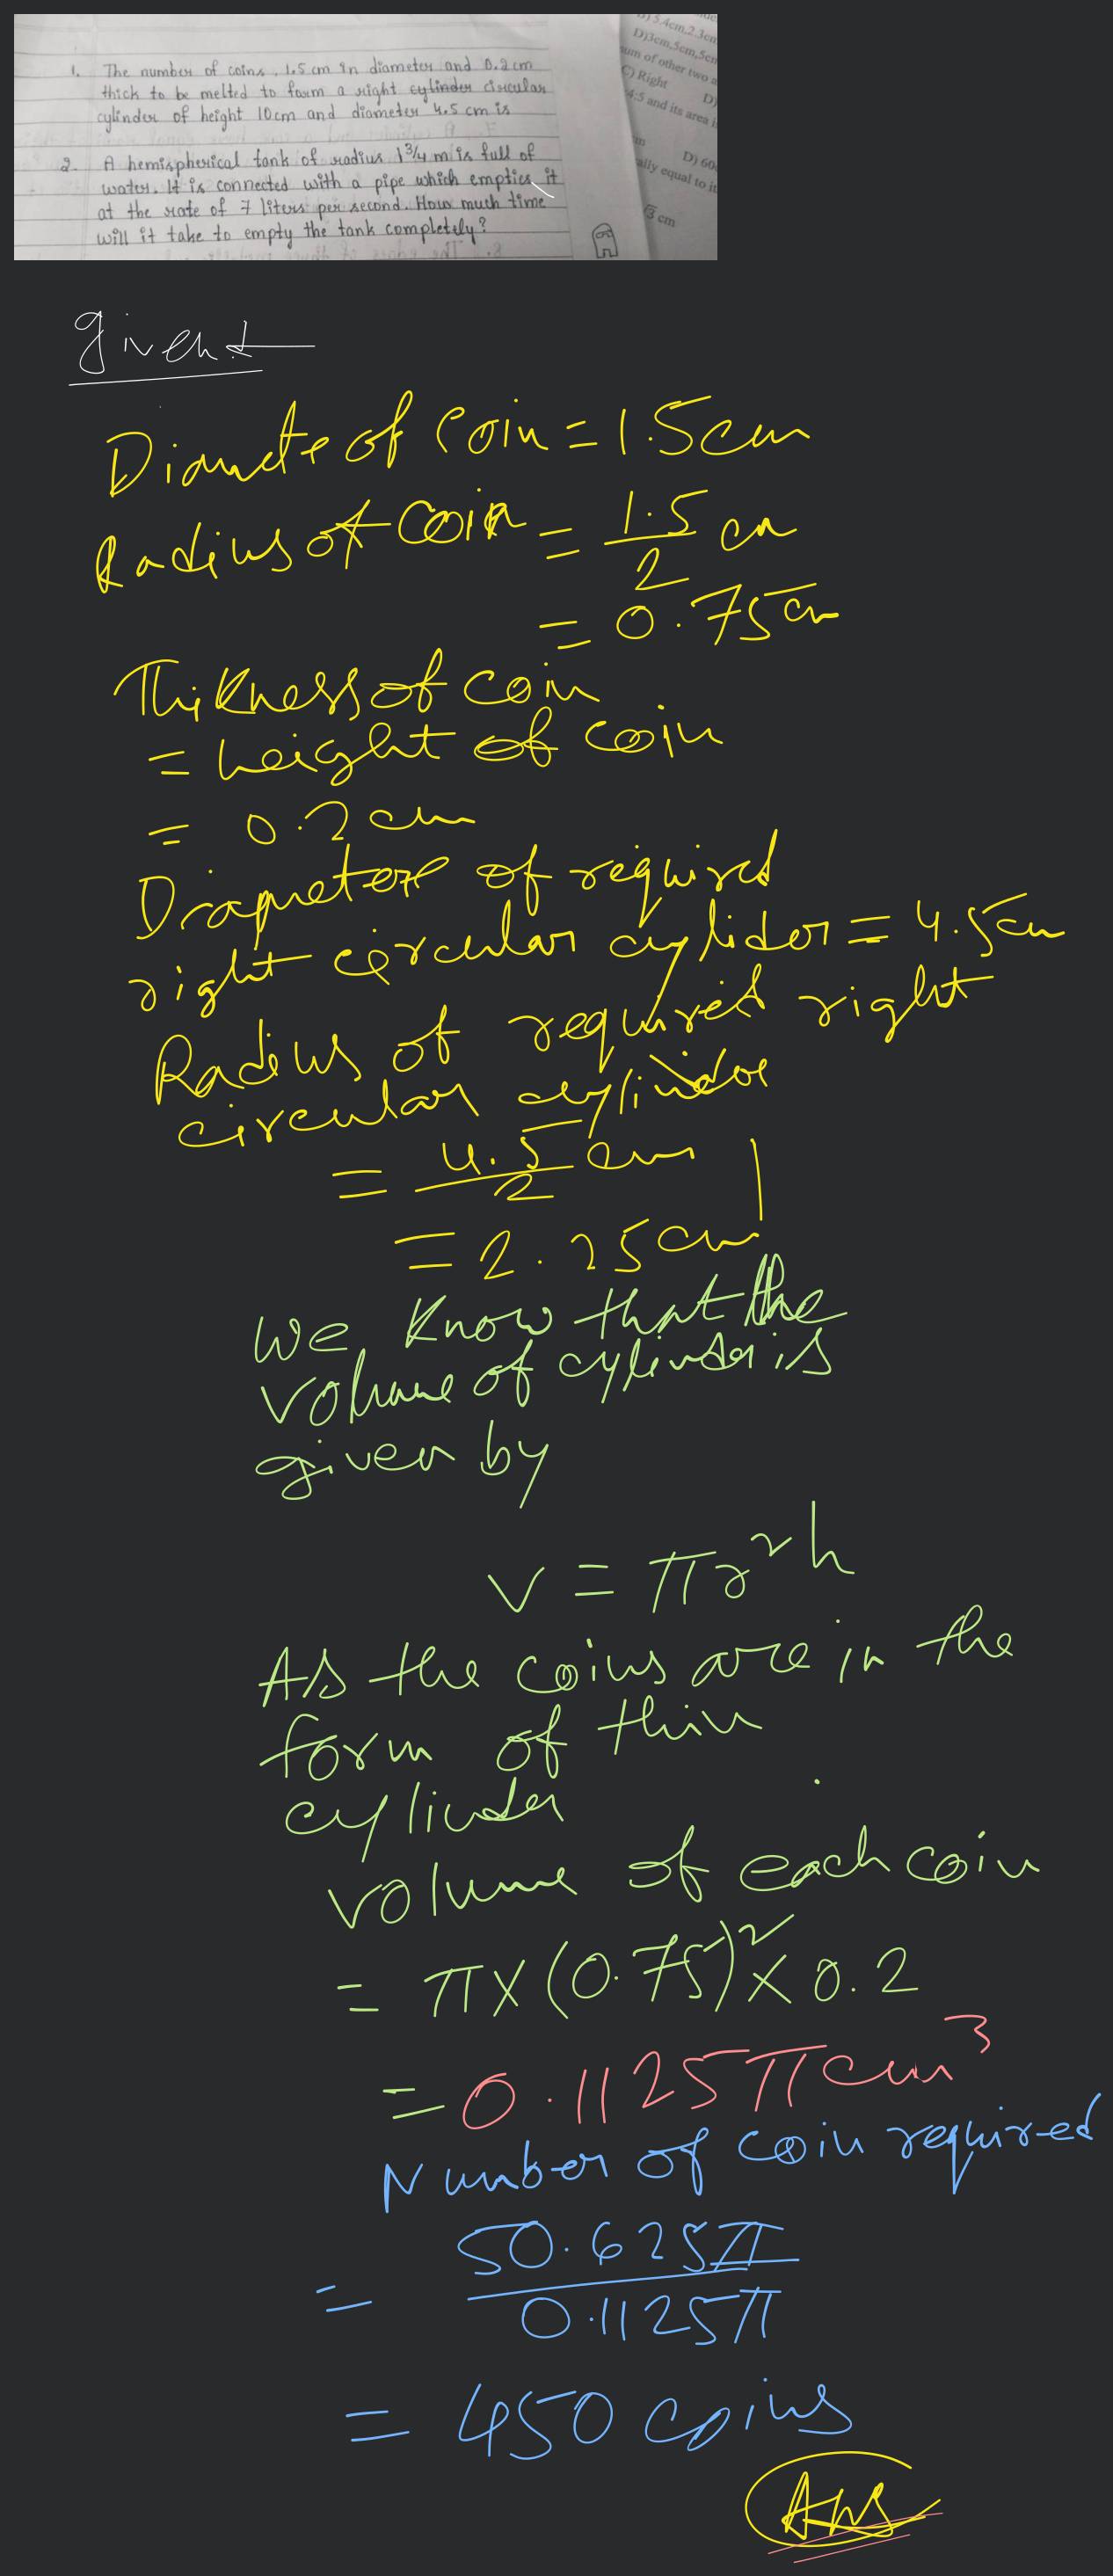 1. The number of coins, 1.5 cm in diameter and 0.2 cm
thick to be melted to form a right cylinder circular
cylinder of height 10cm and diameter 4.5 cm is
2. A hemispherical tank of radius 1 3/4 m is full of
water. It is connected with a pipe which empties it
at the rate of 7 liters per second. How much time
will it take to empty the tank completely?
5.4cm, 2.3cm
D)3cm,5cm,5cm
sum of other two a
C) Right
D)
4:5 and its area i
m
D) 60
ally equal to it
√3 cm
given:-
Diamete of coin = 1.5cm
Radius of coin = 1.5/2 cm
= 0.75cm
Thikness of coin
= height of coin
= 0.2 cm
Diameter of required
right circular cylider = 4.5cm
Radius of required right
circular cylinder
= 4.5/2 cm
= 2.25cm
We know that the
volume of cylinder is
given by
V = πr²h
As the coins are in the
form of thin
cylinder
volume of each coin
= π×(0.75)²×0.2
= 0.1125π cm³
Number of coin required
= 50.625π/0.1125π
= 450 coins
Ans